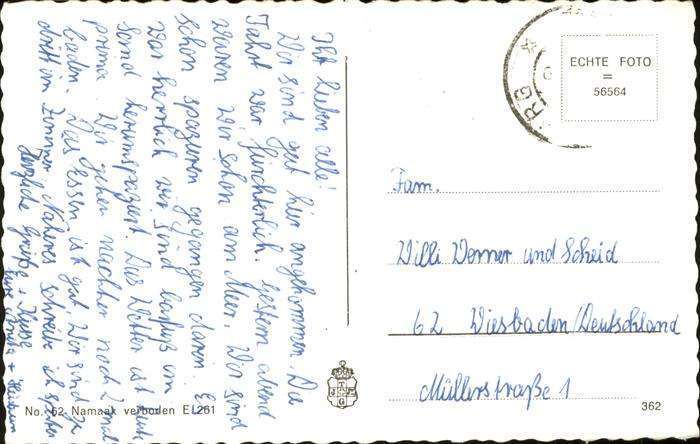 Ihr lieben alle!
Wir sind gut hier angekommen. Die
Fahrt war fürchterlich. Gestern abend
waren wir schon am Meer. Wir sind
schon spazieren gegangen daran. Es
war herrlich wir sind barfuß im
Sand herumspaziert. Das Wetter ist
prima. Wir gehen nachher noch 2 mal
baden. Das Essen ist gut. Wir sind zu
dritt im Zimmer. Näheres schreibe ich später
Herzliche Grüße + Küsse
No. 62 Namaak verboden EL261
RG
ECHTE FOTO
=
56564
Fam.
Willi Werner und Scheid
62 Wiesbaden/Deutschland
Müllerstraße 1
J T F
G
362